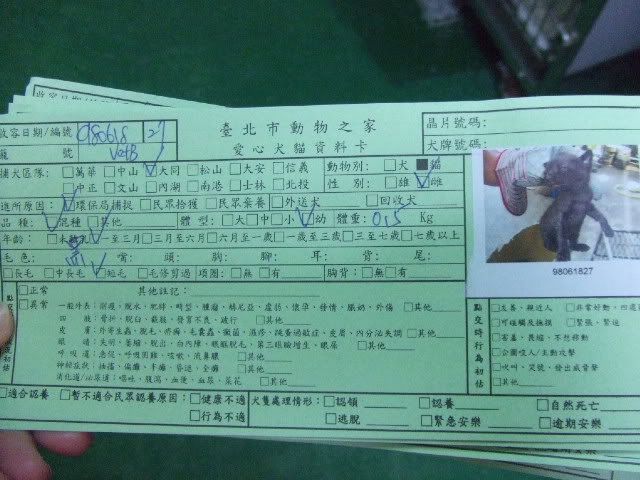 臺北市動物之家
愛心犬貓資料卡
收容日期/編號 980618 27
籠號
晶片號碼:
犬牌號碼:
捕犬區隊: □萬華 □中山 □大同 □松山 □大安 □信義 動物別: □犬 ■貓
□中正 □文山 □內湖 □南港 □士林 □北投 性別: □雄 □雌
進所原因: □環保局捕捉 □民眾拾獲 □民眾棄養 □外送犬 □回收犬
品種: □混種 □其他 體型: □大□中□小□幼 體重: 0.5 Kg
年齡: □未離乳 □一至三月□三月至六月 □六月至一歲 □一歲至三歲 □三至七歲 □七歲以上
毛色: 黑 嘴: 頭: 胸: 腳: 耳: 背: 尾:
□長毛 □中長毛 □短毛 □毛修剪過 項圈: □無 □有 胸背: □無□有
98061827
□正常 其他註記:
□異常
一般外表: 削瘦、脫水、肥胖、畸型、腫瘤、赫尼亞、虛弱、懷孕、發情、脹奶、外傷 □其他
四肢: 骨折、脫臼、截肢、發育不良、跛行 □其他
皮膚: 外寄生蟲、脫毛、疥癬、毛囊蟲、黴菌、濕疹、跳蚤過敏症、皮屑、內分泌失調 □其他
眼睛: 失明、萎縮、脫出、白內障、眼瞼脫毛、第三眼瞼增生、眼屎 □其他
呼吸道: 急促、呼吸困難、咳嗽、流鼻膿 □其他
神經症狀: 抽搐、偏癱、半癱、昏迷、全癱 □其他
消化道/泌尿道: 嘔吐、腹瀉、血便、血尿、菜花 □其他
點交時行為初估
□友善、親近人 □非常好動、四處
□可碰觸及撫摸 □緊張、緊迫
□害羞、畏縮、不想移動
□企圖咬人/主動攻擊
□吠叫、哭號、發出威脅聲
□其他
□適合認養 □暫不適合民眾認養原因: □健康不適 犬隻處理情形: □認領 □認養 □自然死亡
□行為不適 □逃脫 □緊急安樂 □逾期安樂